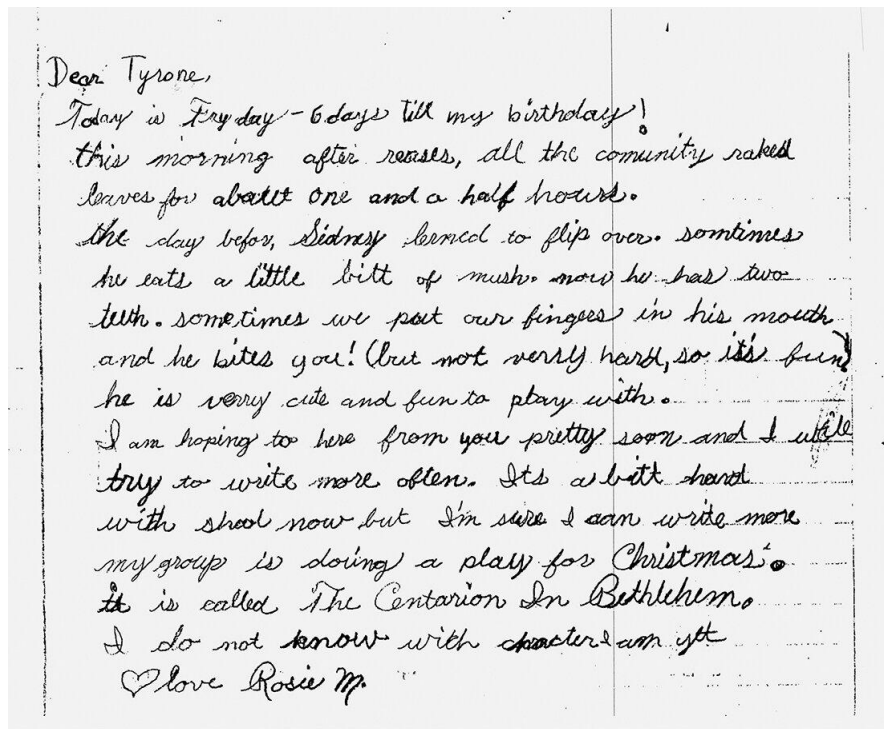 Dear Tyrone,
Today is Fryday - 6 days till my birthday!
this morning after reases, all the comunity raked
leaves for abautt one and a half hours.
the day befor, Sidney lerned to flip over. somtimes
he eats a little bitt of mush. now he has two
teeth. sometimes we put our fingers in his mouth
and he bites you! (but not verry hard, so it's fun)
he is verry cute and fun to play with.
I am hoping to here from you pretty soon and I will
try to write more often. Its a bitt hard
with shool now but I'm sure I can write more
my group is doing a play for Christmas.
it is called The Centarion In Bethlehem.
I do not know with chracter I am yet
love Rosie M.